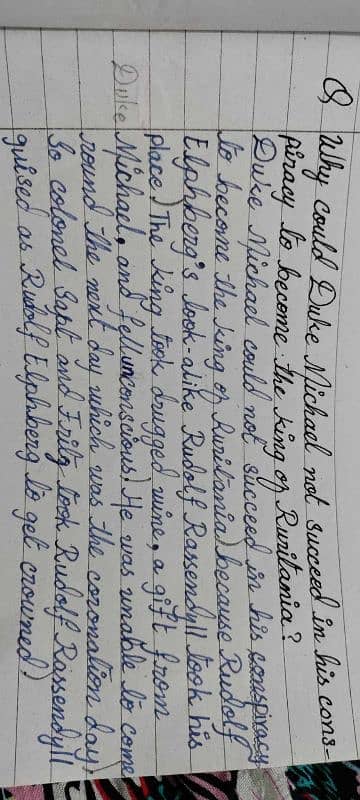 Q Why could Duke Michael not succeed in his cons-
piracy to become the king of Ruritania?
Duke Michael could not succeed in his conspiracy
to become the king of Ruritania) because Rudolf
Elphberg's look-alike Rudolf Rassendyll took his
place) The king took drugged wine, a gift from
Duke Michael, and fell unconscious) He was unable to come
round the next day which was the coronation day)
So colonel Sapt and Fritz took Rudolf Rassendyll
guised as Rudolf Elphberg to get crowned)